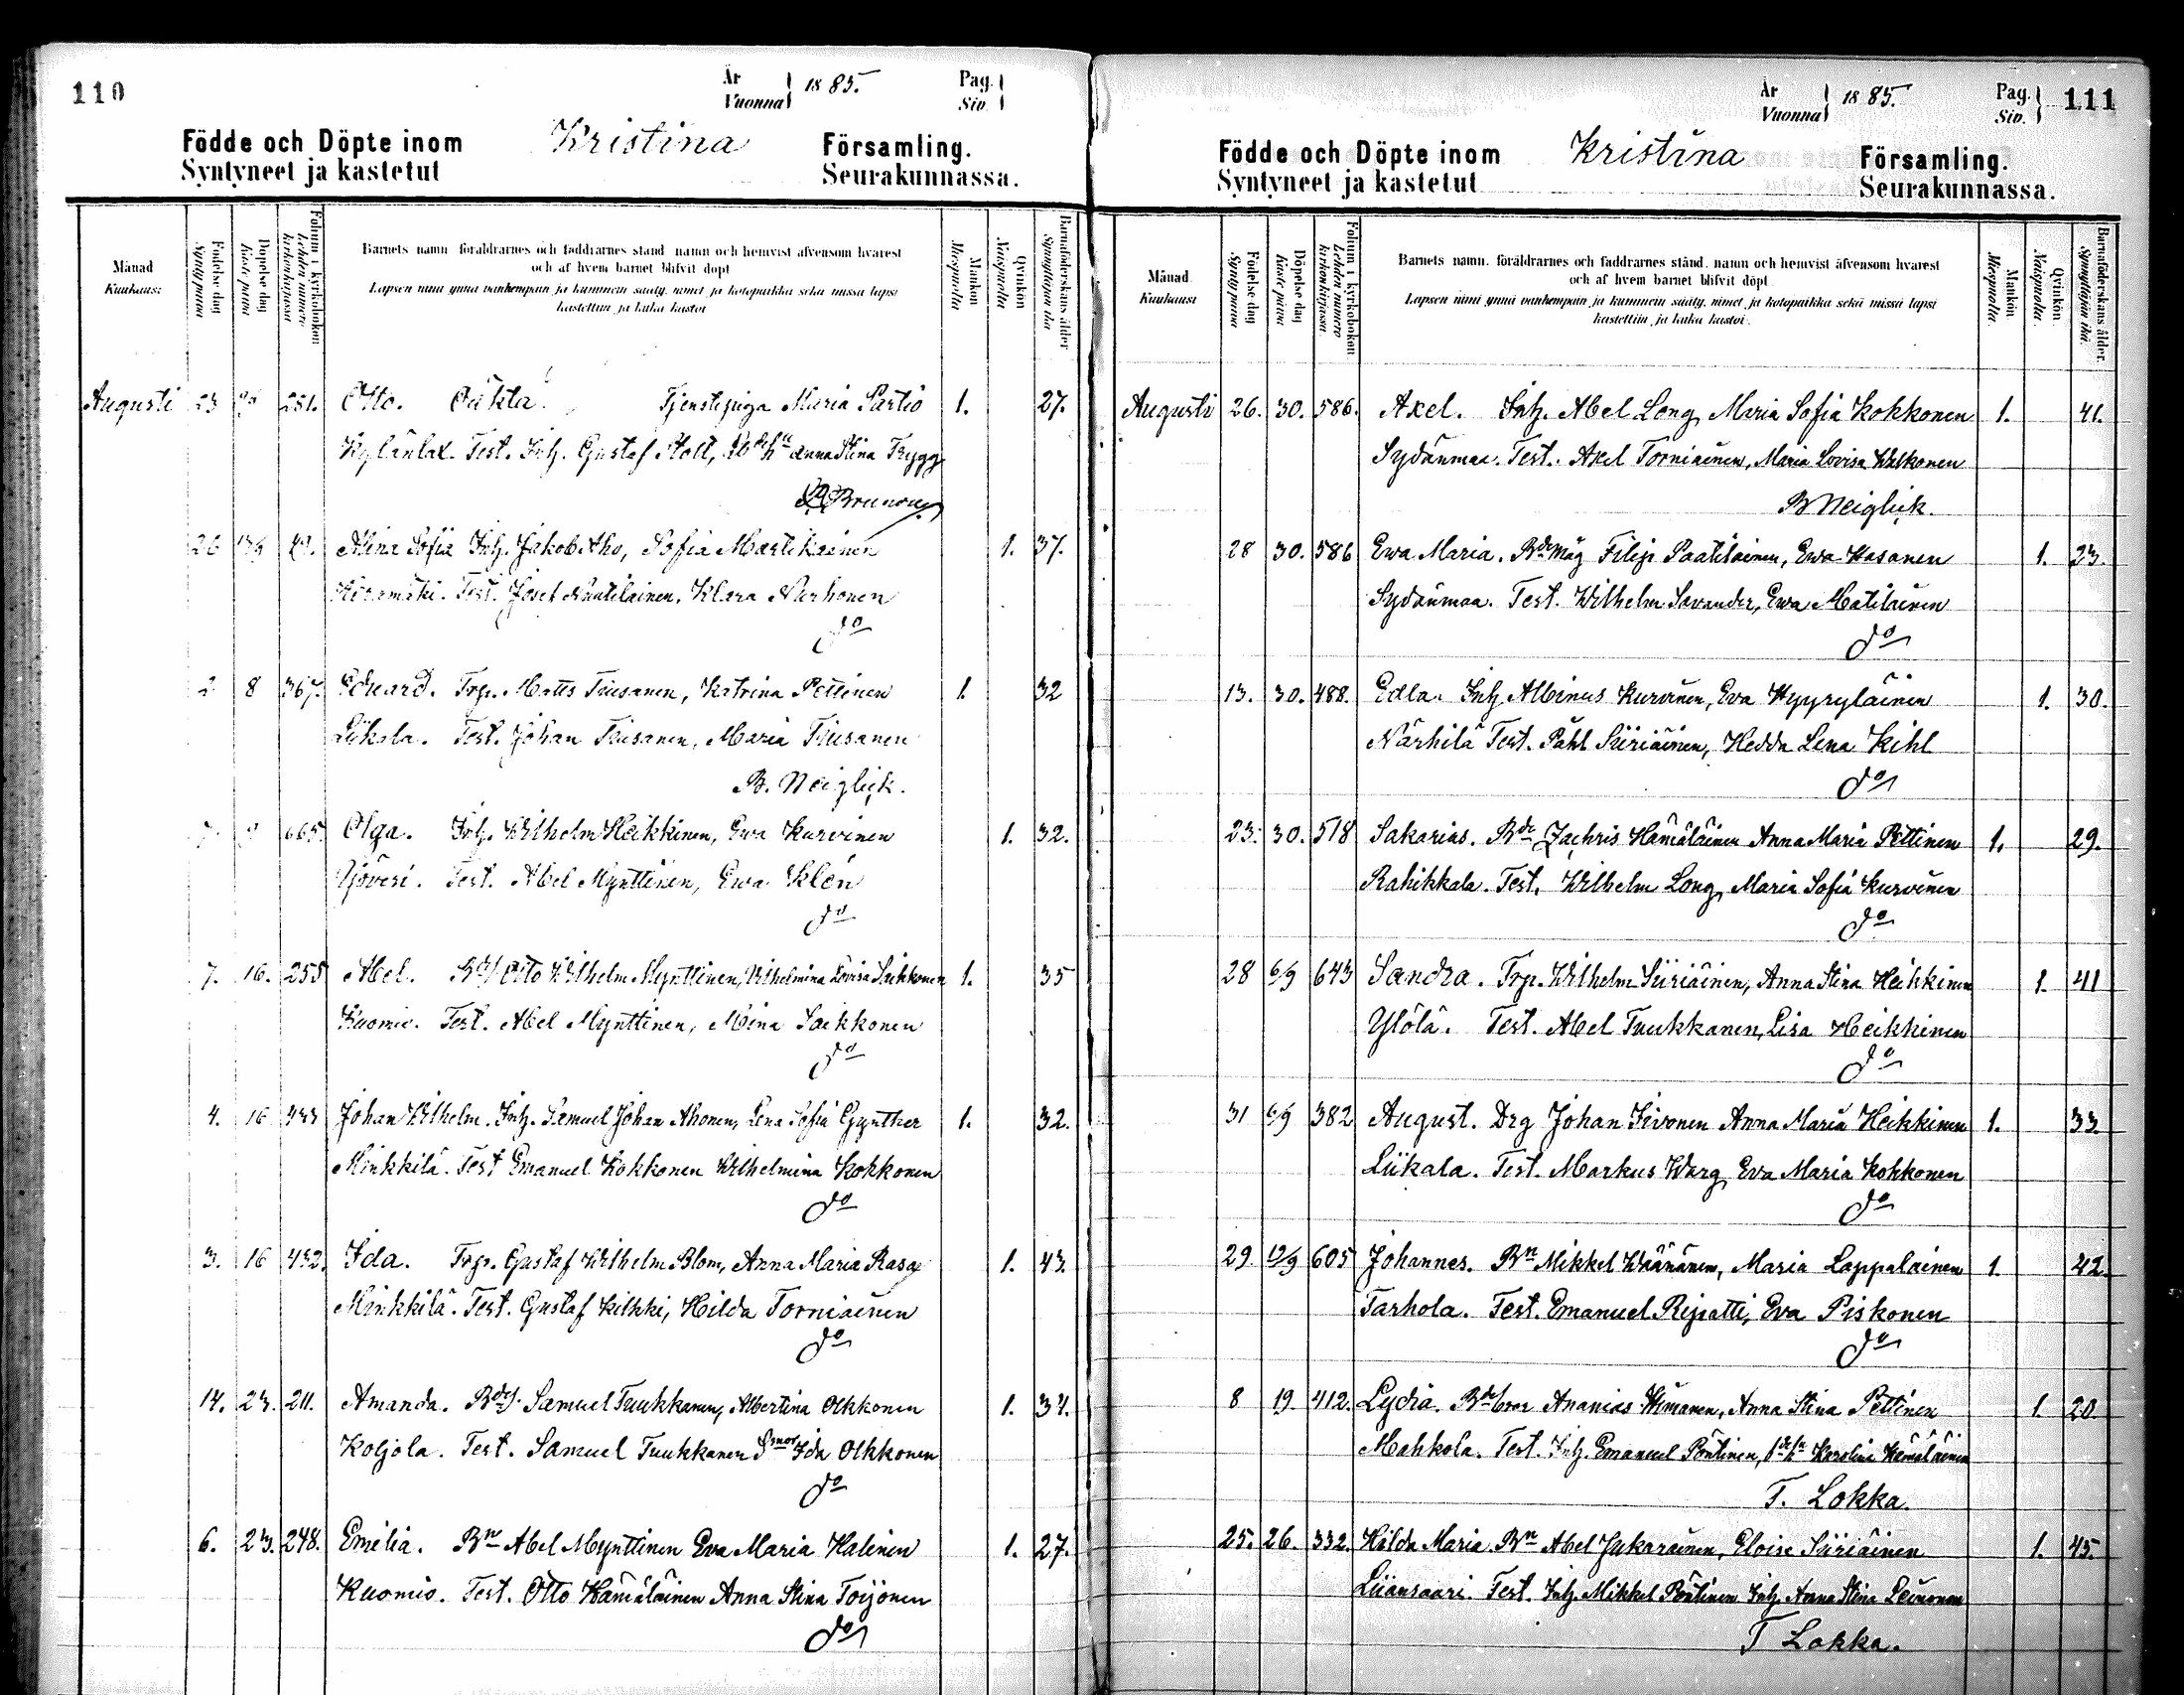 110
År
Vuonna
1885.
Pag.
Siv.
Födde och Döpte inom
Kristina
Församling.
Syntyneet ja kastetut
Seurakunnassa.
Månad
Kuukausi
Födelse dag
Synty päivä
Döpelse dag
Kaste päivä
Folium i kyrkoboken
Lehden numero kirkonkirjassa
Barnets namn föräldrarnes och faddrarnes stånd namn och hemvist äfvensom hvarest
och af hvem barnet blifvit döpt
Lapsen nimi ynnä vanhempain ja kummein sääty, nimet ja kotopaikka sekä missä lapsi
kastettiin ja kuka kastoi
Mankön
Miespuolia
Qvinkön
Naispuolia
Barnaföderskans ålder
Synnyttäjän ikä
Augusti 23 251. Otto. Oäkta. Tjenstepiga Maria Partio 1. 27.
Kylänlax. Test. Inh. Gustaf Stolt, Anna Stina Trygg
26 49. Mina Sofia Inh. Jakob Aho, Sofia Martikainen 1. 37.
Test. Josef Nuutilainen, Klara Nurhonen
do
2 8 367. Eduard. Trp. Matts Tiusanen, Katrina Pettinen 1. 32
Liikala. Test. Johan Tiusanen, Maria Tiusanen
B. Neiglick.
7 9 665. Olga. Inh. Wilhelm Heikkinen, Ewa Kurvinen 1. 32.
Test. Abel Mynttinen, Ewa Klén
do
7. 16. 255 Abel. Otto Wilhelm Mynttinen, Wilhelmina Lovisa Saikkonen 1. 35
Kuomio. Test. Abel Mynttinen, Mina Saikkonen
do
4. 16 433 Johan Wilhelm. Inh. Samuel Johan Ahonen, Lena Sofia Gynther 1. 32.
Minkkilä. Test Emanuel Kokkonen Wilhelmina Kokkonen
do
3. 16 432. Ida. Trp. Gustaf Wilhelm Blom, Anna Maria Rasa 1. 43.
Minkkilä. Test. Gustaf Kilkki, Hilda Torniainen
do
14. 23. 211. Amanda. Bds. Samuel Tuukkanen, Albertina Olkkonen 1. 31.
Koljola. Test. Samuel Tuukkanen Ida Olkkonen
do
6. 23. 248. Emelia. Bn Abel Mynttinen Eva Maria Halinen 1. 27.
Kuomio. Test. Otto Hämäläinen Anna Stina Toijonen
do
År
Vuonna
1885.
Pag.
Siv.
111
Födde och Döpte inom
Kristina
Församling.
Syntyneet ja kastetut
Seurakunnassa.
Månad
Kuukausi
Födelse dag
Synty päivä
Döpelse dag
Kaste päivä
Folium i kyrkoboken
Lehden numero kirkonkirjassa
Barnets namn, föräldrarnes och faddrarnes stånd, namn och hemvist äfvensom hvarest
och af hvem barnet blifvit döpt
Lapsen nimi ynnä vanhempain ja kummein sääty, nimet ja kotopaikka sekä missä lapsi
kastettiin ja kuka kastoi.
Mankön
Miespuolia
Qvinkön
Naispuolia.
Barnaföderskans ålder
Synnyttäjän ikä
Augusti 26. 30. 586. Axel. Inh. Abel Long Maria Sofia Kokkonen 1. 41.
Sydänmaa. Test. Axel Torniainen, Maria Lovisa Walkonen
B Neiglick.
28 30. 586 Ewa Maria. Bde måg Filip Paatilainen, Ewa Hasanen 1. 23.
Sydänmaa. Test. Wilhelm Savander, Ewa Matilainen
do
13. 30. 488. Edla. Inh Albinus Kurvinen, Eva Hyyryläinen 1. 30.
Närhilä Test. Påhl Siiriäinen, Hedda Lena Kihl
do
23. 30. 518 Sakarias. Bde Zachris Hämäläinen Anna Maria Pettinen 1. 29.
Rahikkala. Test. Wilhelm Long, Maria Sofia Kurvinen
do
28 6/9 643 Sandra. Trp. Wilhelm Siiriäinen, Anna Stina Heikkinen 1. 41
Ylölä. Test. Abel Tuukkanen, Lisa Heikkinen
do
31 6/9 382 August. Drg Johan Sivonen Anna Maria Heikkinen 1. 33.
Liikala. Test. Markus Warg Eva Maria Kokkonen
do
29. 605 Johannes. Bn Mikkel Wäänänen, Maria Lappalainen 1. 42.
Tarhola. Test. Emanuel Ripatti, Eva Piskonen
do
8 19. 412. Lydia. Bde bror Ananias Himanen, Anna Stina Pettinen 1. 20.
Mahkola. Test. Inh. Emanuel Pöntinen, Karolina Hämäläinen
T. Lokka.
25. 26. 332. Hilda Maria. Bn Abel Jukarainen, Eloise Siiriäinen 1. 45.
Liiansaari. Test. Inh. Mikkel Pöntinen Inh. Anna Stina Leinonen
T Lokka.